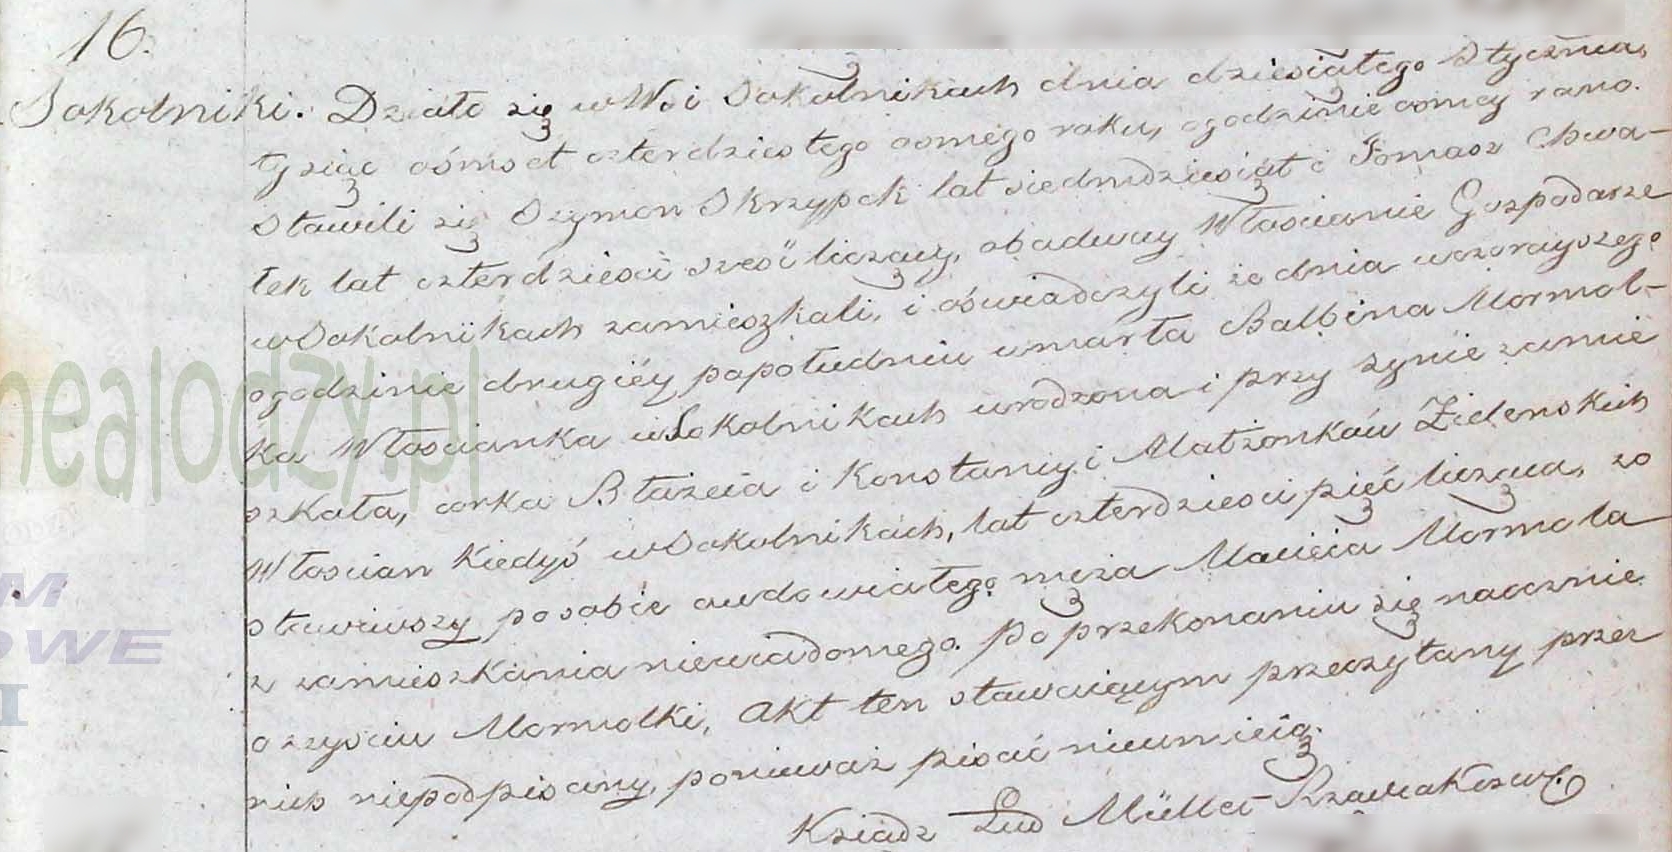 16.
Sokolniki. Działo się w Wsi Sokolnikach dnia dziesiątego Stycznia,
tysiąc ośmset czterdziestego osmego roku, ogodzinie osmey rano.
Stawili się Szymon Skrzypek lat siedmdziesiąt i Tomasz Chwa-
łek lat czterdzieści sześć liczący, obadway Włościanie Gospodarze
w Sokolnikach zamieszkali, i oświadczyli że dnia wczorayszego
ogodzinie drugiéy popołudniu umarła Balbina Mormol-
ka Włościanka w Sokolnikach urodzona i przy synie zamie
szkała, corka Błażeia i Konstancyi Małżonków Zielenskich
Włościan kiedyś w Sokolnikach, lat czterdzieści pięć licząca, zo
stawiwszy po sobie owdowiałego męża Macieia Mormola
z zamieszkania niewiadomego. Po przekonaniu się naocznie
o zeysciu Mormolki, Akt ten stawaiącym przeczytany przez
nich niepodpisany, ponieważ pisać nieumieią.
Ksiądz Lud Müller
nealodzy.pl
M
OWE
I